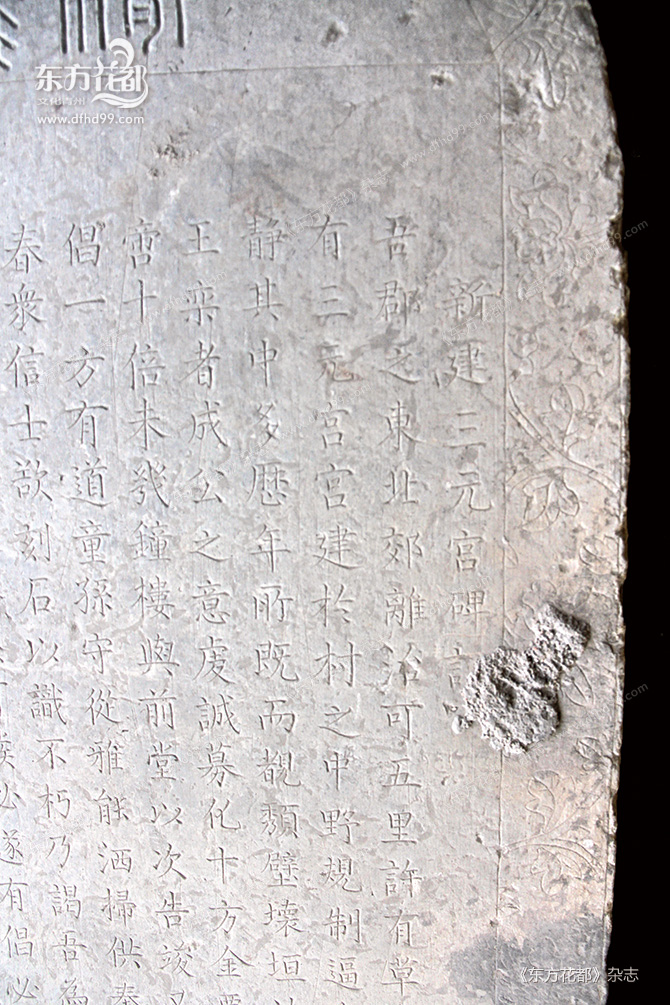 东方花都
文化青州
www.dfhd99.com
新建三元宫碑記
吾郡之東北郊離治可五里許有草
有三元宫宫建於村之中野規制逼
静其中多歷年所既而覩頽壁壊垣
王栾者成公之意虔誠募化十方金
啻十倍未幾鐘樓與前堂以次告竣
倡一方有道童孫守從雅能洒掃供奉
春衆信士欲刻石以識不朽乃謁吾為
必遂有倡必
《东方花都》杂志